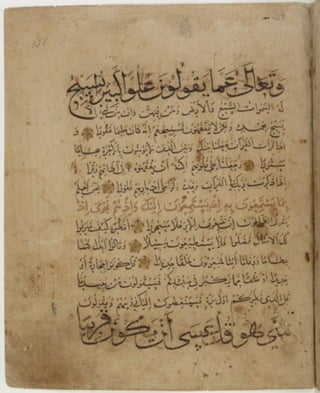 وتعالى عما يقولون علوا كبيرا تسبح
له السموات السبع والارض ومن فيهن وان من شيء الا
يسبح بحمده ولكن لا تفقهون تسبيحهم انه كان حليما غفورا
واذا قرات القران جعلنا بينك وبين الذين لا يؤمنون بالاخرة حجابا
مستورا وجعلنا على قلوبهم اكنة ان يفقهوه وفي اذانهم وقرا
واذا ذكرت ربك في القران وحده ولوا على ادبارهم نفورا نحن اعلم
بما يستمعون به اذ يستمعون اليك واذ هم نجوى اذ
يقول الظالمون ان تتبعون الا رجلا مسحورا انظر كيف ضربوا
لك الامثال فضلوا فلا يستطيعون سبيلا وقالوا ائذا كنا
عظاما ورفاتا ائنا لمبعوثون خلقا جديدا قل كونوا حجارة او
حديدا او خلقا مما يكبر في صدوركم فسيقولون من يعيدنا
قل الذي فطركم اول مرة فسينغضون اليك رءوسهم ويقولون
متى هو قل عسى ان يكون قريبا